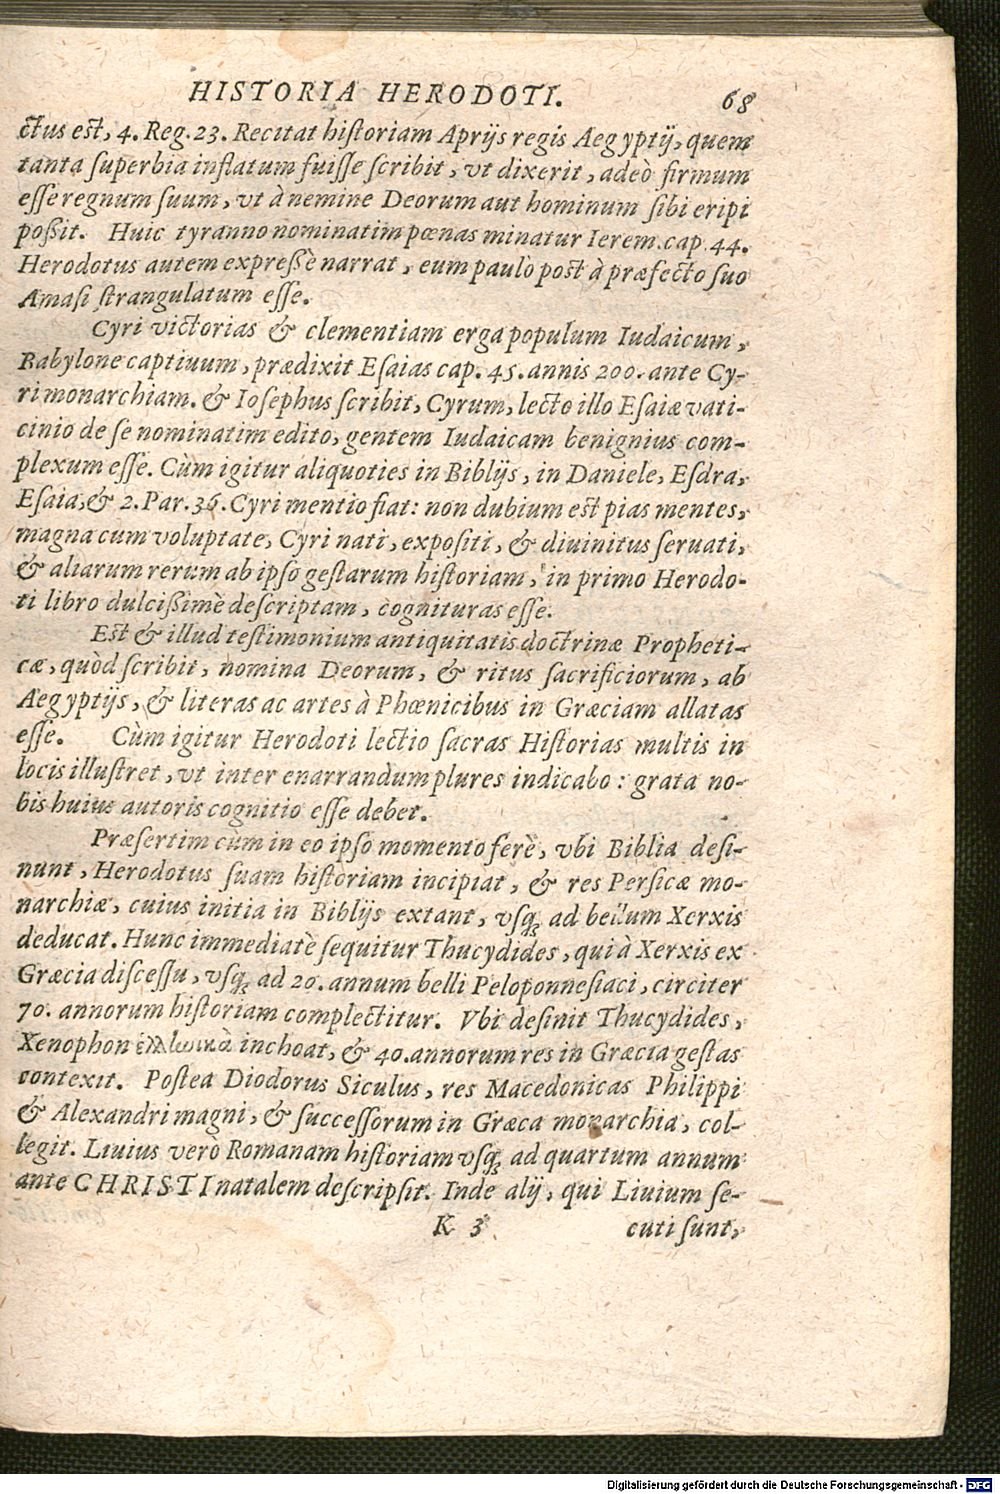 HISTORIA HERODOTI. 68
ctus est, 4. Reg. 23. Recitat historiam Aprijs regis Aegyptij, quem
tanta superbia inflatum fuisse scribit, vt dixerit, adeò firmum
esse regnum suum, vt à nemine Deorum aut hominum sibi eripi
poßit. Huic tyranno nominatim pœnas minatur Ierem. cap. 44.
Herodotus autem expreßè narrat, eum paulò post à præfecto suo
Amasi strangulatum esse.
Cyri victorias & clementiam erga populum Iudaicum,
Babylone captiuum, prædixit Esaias cap. 45. annis 200. ante Cy-
ri monarchiam. & Iosephus scribit, Cyrum, lecto illo Esaiæ vati-
cinio de se nominatim edito, gentem Iudaicam benignius com-
plexum esse. Cùm igitur aliquoties in Biblijs, in Daniele, Esdra,
Esaia, & 2. Par. 36. Cyri mentio fiat: non dubium est pias mentes,
magna cum voluptate, Cyri nati, expositi, & diuinitus seruati,
& aliarum rerum ab ipso gestarum historiam, in primo Herodo-
ti libro dulcißimè descriptam, cognituras esse.
Est & illud testimonium antiquitatis doctrinæ Propheti-
cæ, quòd scribit, nomina Deorum, & ritus sacrificiorum, ab
Aegyptijs, & literas ac artes à Phœnicibus in Græciam allatas
esse. Cùm igitur Herodoti lectio sacras Historias multis in
locis illustret, vt inter enarrandum plures indicabo: grata no-
bis huius autoris cognitio esse debet.
Præsertim cùm in eo ipso momento ferè, vbi Biblia desi-
nunt, Herodotus suam historiam incipiat, & res Persicæ mo-
narchiæ, cuius initia in Biblijs extant, vsq; ad bellum Xerxis
deducat. Hunc immediatè sequitur Thucydides, qui à Xerxis ex
Græcia discessu, vsq; ad 20. annum belli Peloponnesiaci, circiter
70. annorum historiam complectitur. Vbi desinit Thucydides,
Xenophon ἑλλωικὰ inchoat, & 40. annorum res in Græcia gestas
contexit. Postea Diodorus Siculus, res Macedonicas Philippi
& Alexandri magni, & successorum in Græca monarchia, col-
legit. Liuius verò Romanam historiam vsq; ad quartum annum
ante CHRISTI natalem descripsit. Inde alij, qui Liuium se-
K 3 cuti sunt,
Digitalisierung gefördert durch die Deutsche Forschungsgemeinschaft - DFG